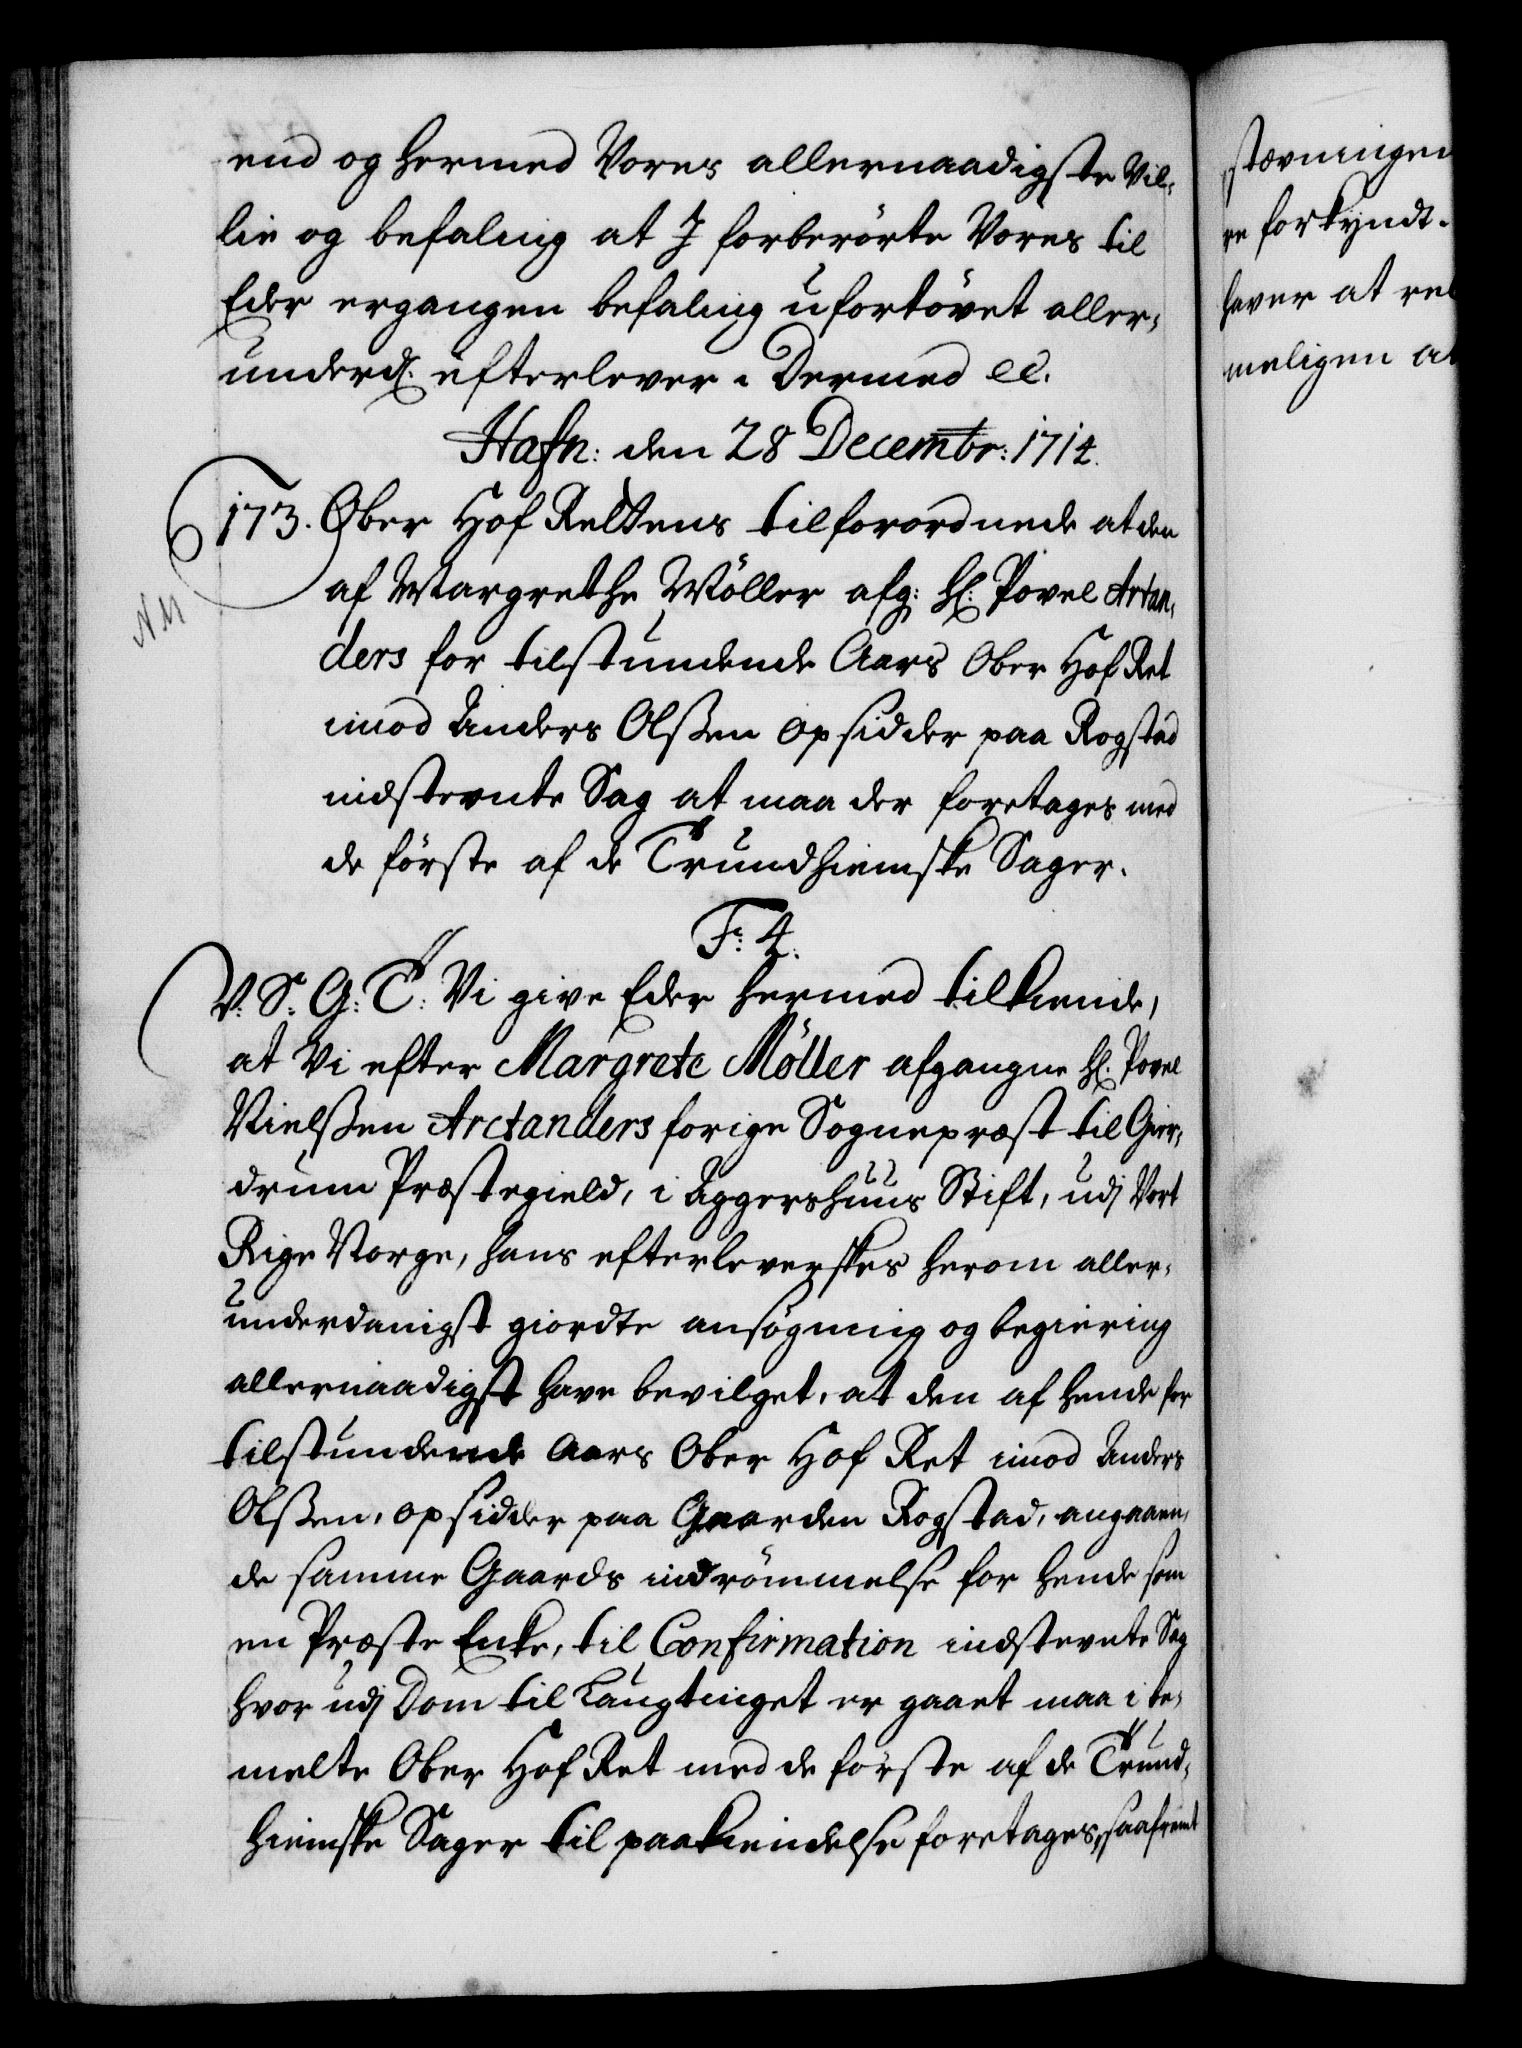 end og hermed Vores allernaadigste Vil-
lie og befaling at I forberörte Vores til
Eder ergangen befaling ufortövet aller-
underd. efterlever. Dermed ec.
Hafn: den 28 Decembr: 1714.
173. Ober Hof Rettens tilforordnede at den
af Margrethe Möller afg: Hr: Povel Arctan-
ders for tilstundende Aars Ober Hof Ret
imod Anders Olßen opsidder paa Rogstad
indstevnte Sag at maa der foretages med
de förste af de Trundhiemske Sager.
NM
F: 4.
V. S: G: T: Vi give Eder hermed tilkiende,
at Vi efter Margrete Möller afgangne Hr. Povel
Nielßen Arctanders forige Sognepræst til Gier-
drum Præstegield, i Aggershuus Stift, udj Vort
Rige Norge, hans efterleverskes herom aller-
underdanigst giordte ansögning og begiering
allernaadigst have bevilget, at den af hende for
tilstundende Aars Ober Hof Ret imod Anders
Olßen, opsidder paa Gaarden Rogstad, angaaen-
de samme Gaards indrömmelse for hende som
en Præste Enke, til Confirmation indstevnte Sag
hvor udj Dom til Laugtinget er gaaet maa i be-
melte Ober Hof Ret med de förste af de Trund-
hiemske Sager til paakiendelse foretages, saafremt
stævningen
re forkyndt.
haver at ret
meligen at